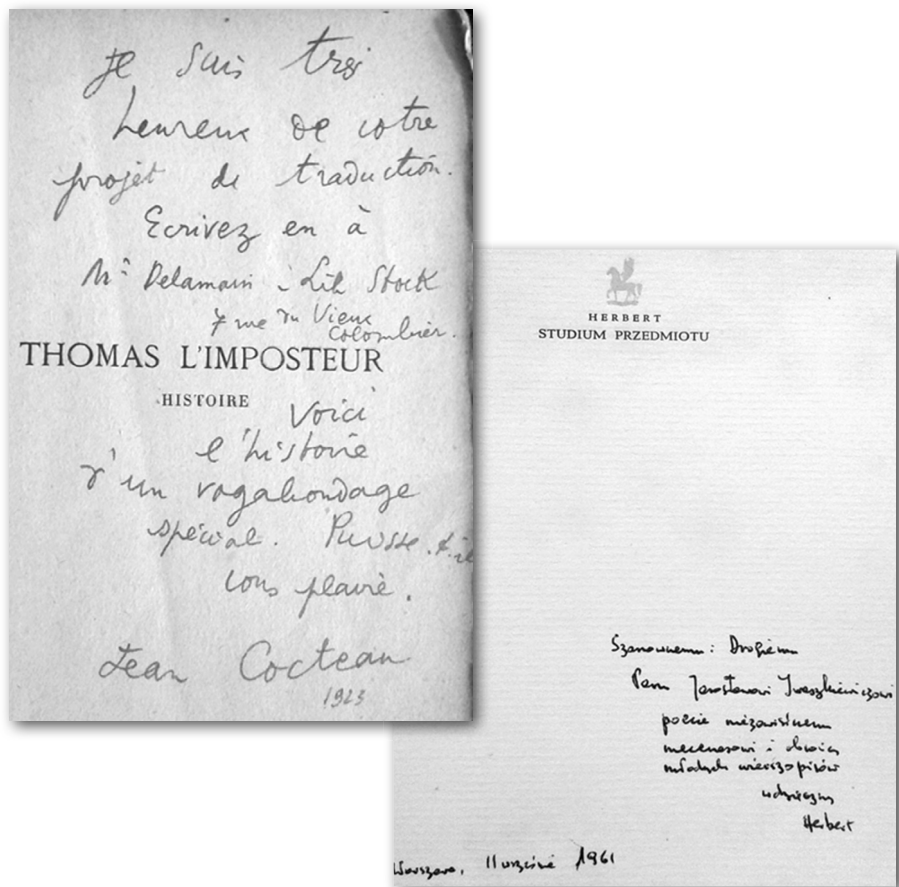 Je suis très
heureux de votre
projet de traduction.
Ecrivez en à
Mr Delamain - Lib Stock
7 rue du Vieux
Colombier.
THOMAS L'IMPOSTEUR
HISTOIRE
Voici
l'histoire
d'un vagabondage
spécial. Puisse-t-il
vous plaire.
Jean Cocteau
1923
HERBERT
STUDIUM PRZEDMIOTU
Szanownemu i Drogiemu
Panu Jarosławowi Iwaszkiewiczowi
poecie
mecenasowi i
młodych wierszopisów
wdzięczny
Herbert
Warszawa, 11 1961